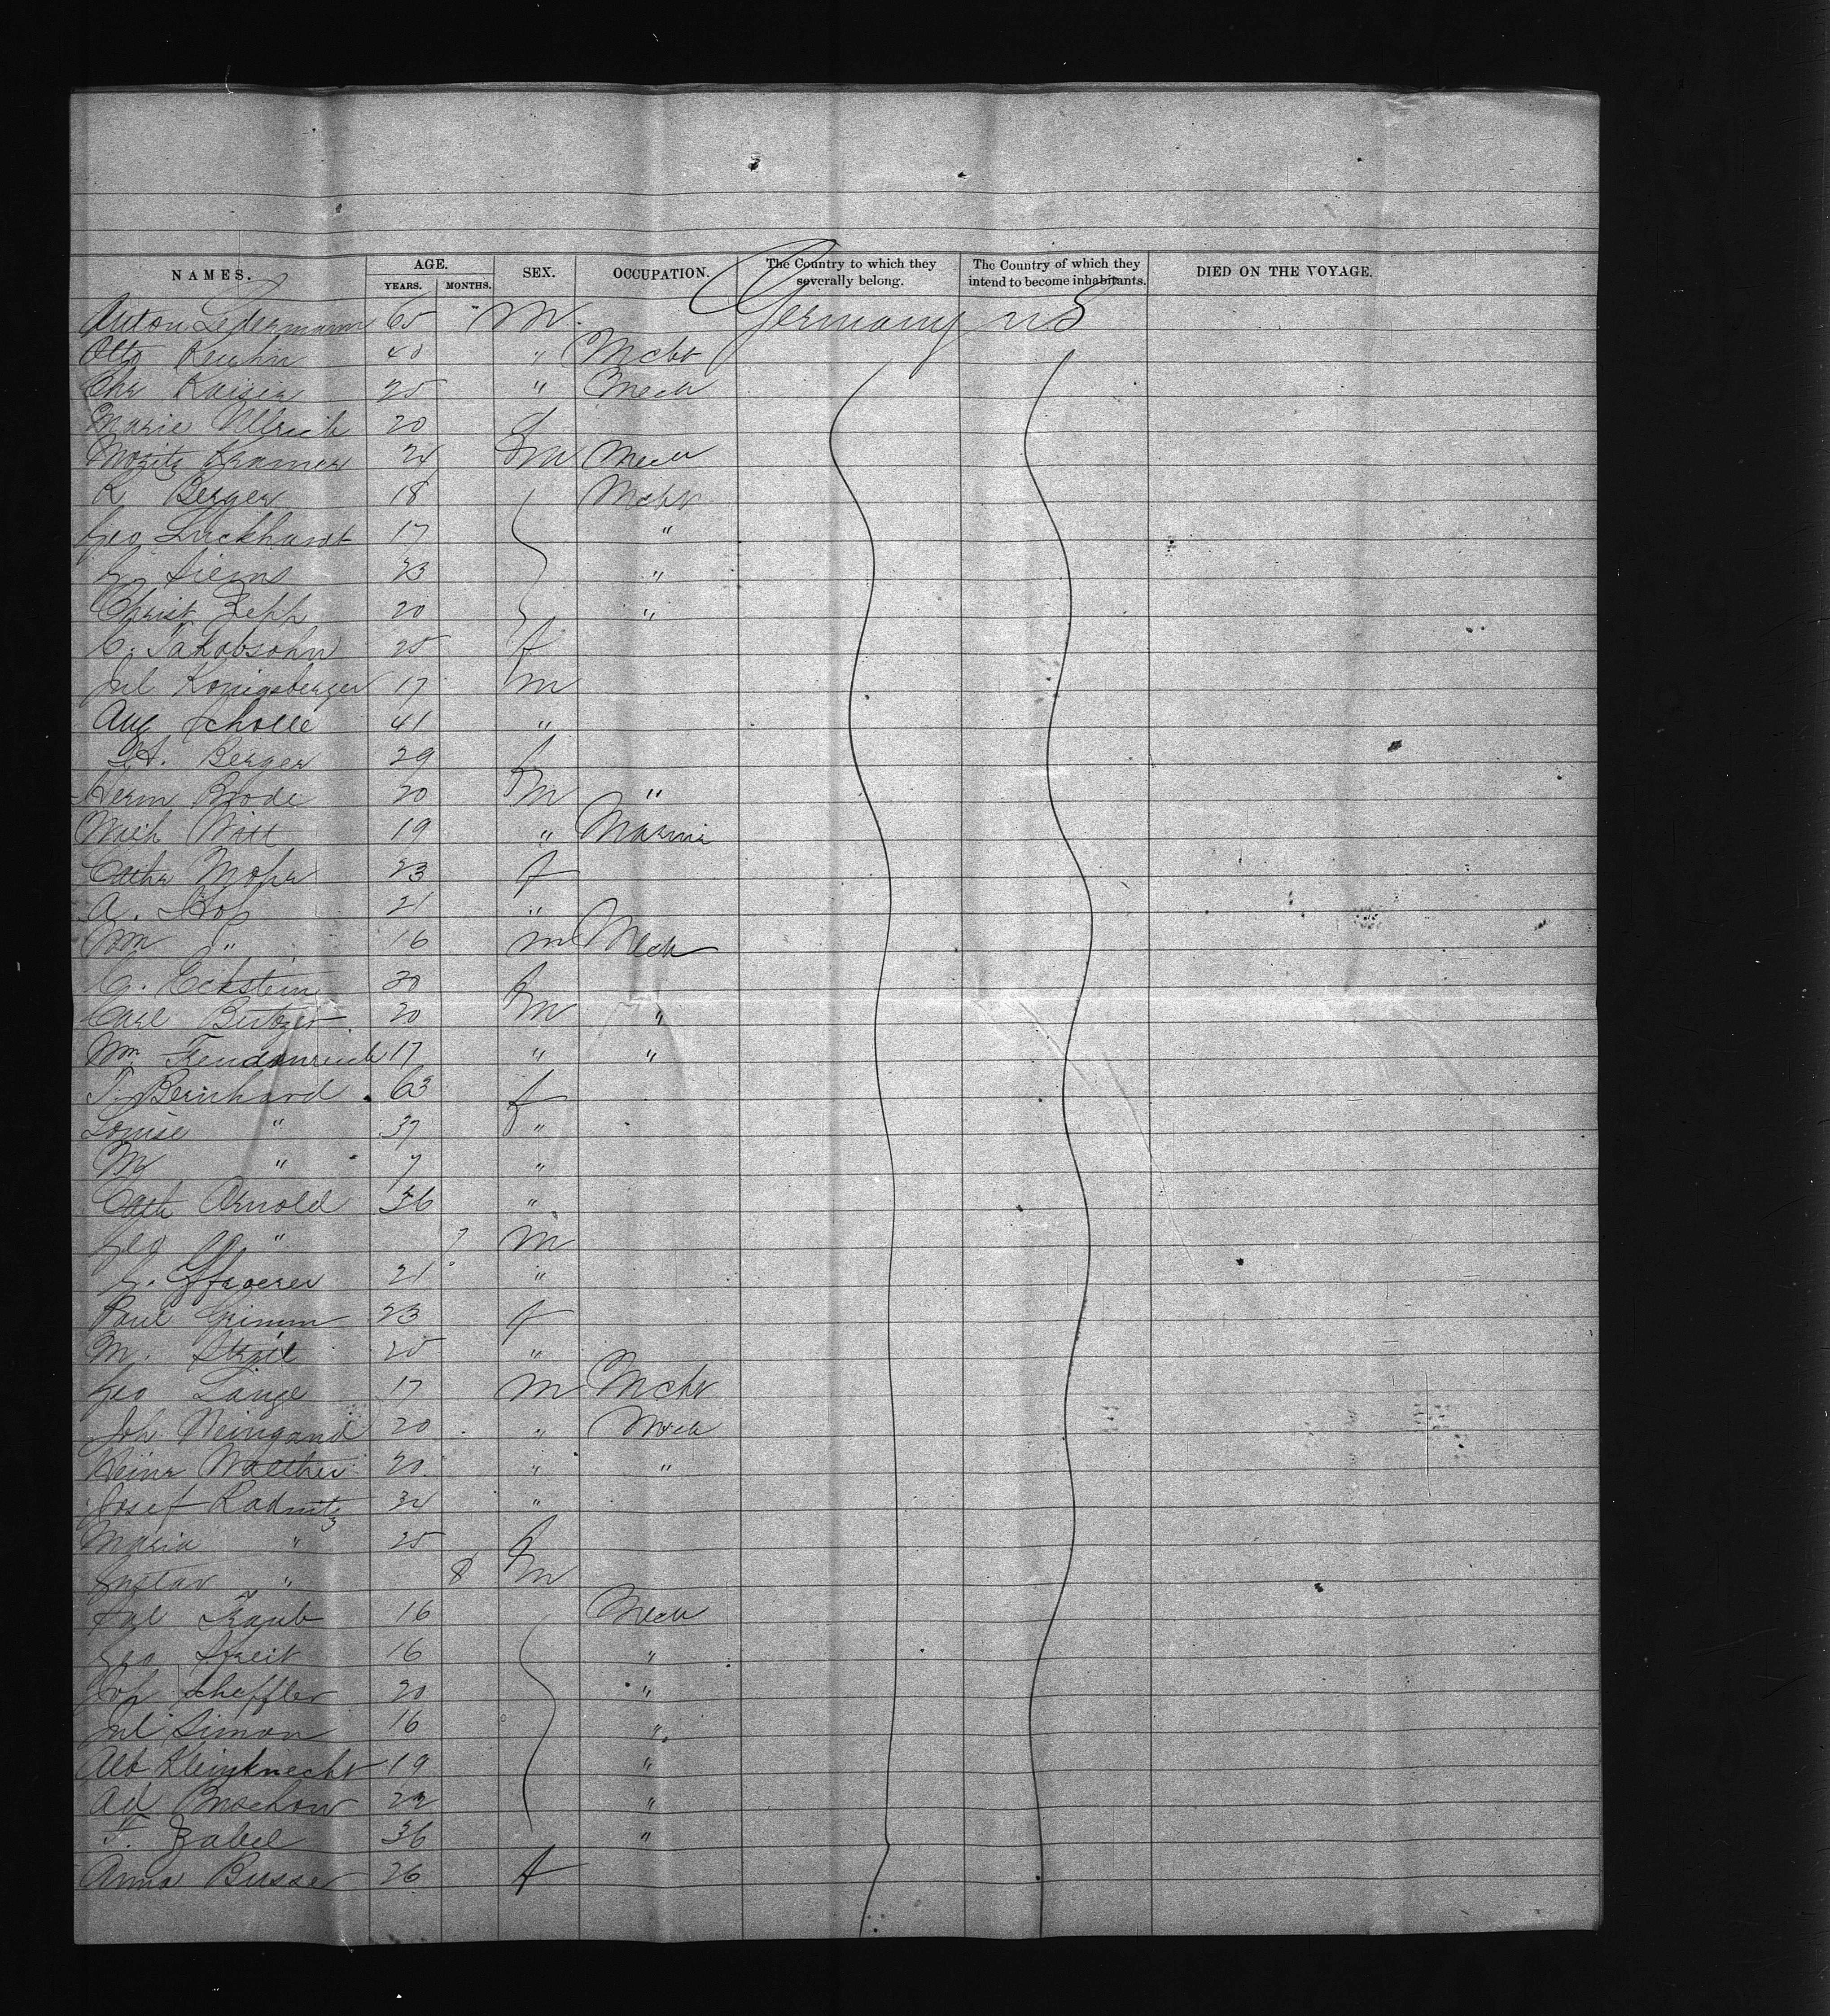 NAMES. AGE. SEX. OCCUPATION. The Country to which they severally belong. The Country of which they intend to become inhabitants. DIED ON THE VOYAGE.
YEARS. MONTHS.
Anton Ledermann 65 M. Germany US
Otto 40 " Mcht
Chr Kaiser 25 " Mech
Marie Ullrich 20 f
Moritz Kramer 24 m Mech
R Berger 18 Mcht
Geo Luckhardt 17 "
G Siems 23 "
Christ Zepp 20 "
C. Jakobsohn 25 f
Jul Konigsberger 17 m
Aug Scholle 41 "
St. Berger 29 f
Herm Brode 20 m "
Mich Witt 19 "
Cathr Mohr 23 f
A. 21 "
Wm " 16 m Mech
C. Eckstein 20 f
Carl 20 m "
Wm 17 " "
T. Bernhard 63 f
Louise " 37 "
M " 7 "
Cath Arnold 36 "
Geo " 7 m
G. Gfroerer 21 "
Paul Grimm 23 f
M. 25 "
Geo Lange 17 m Mcht
Joh Weingand 20 " Mech
Heinr Walther 20 " "
Josef Radnitz 34 "
Maria " 25 f
Gustav " 8 m
Traub 16 Mech
Geo Streit 16 "
Joh Scheffler 20 "
Jul Simon 16 "
Alb Kleinknecht 19 "
Ad Buschow 22 "
F. Zabel 36 "
Anna Busse 26 f